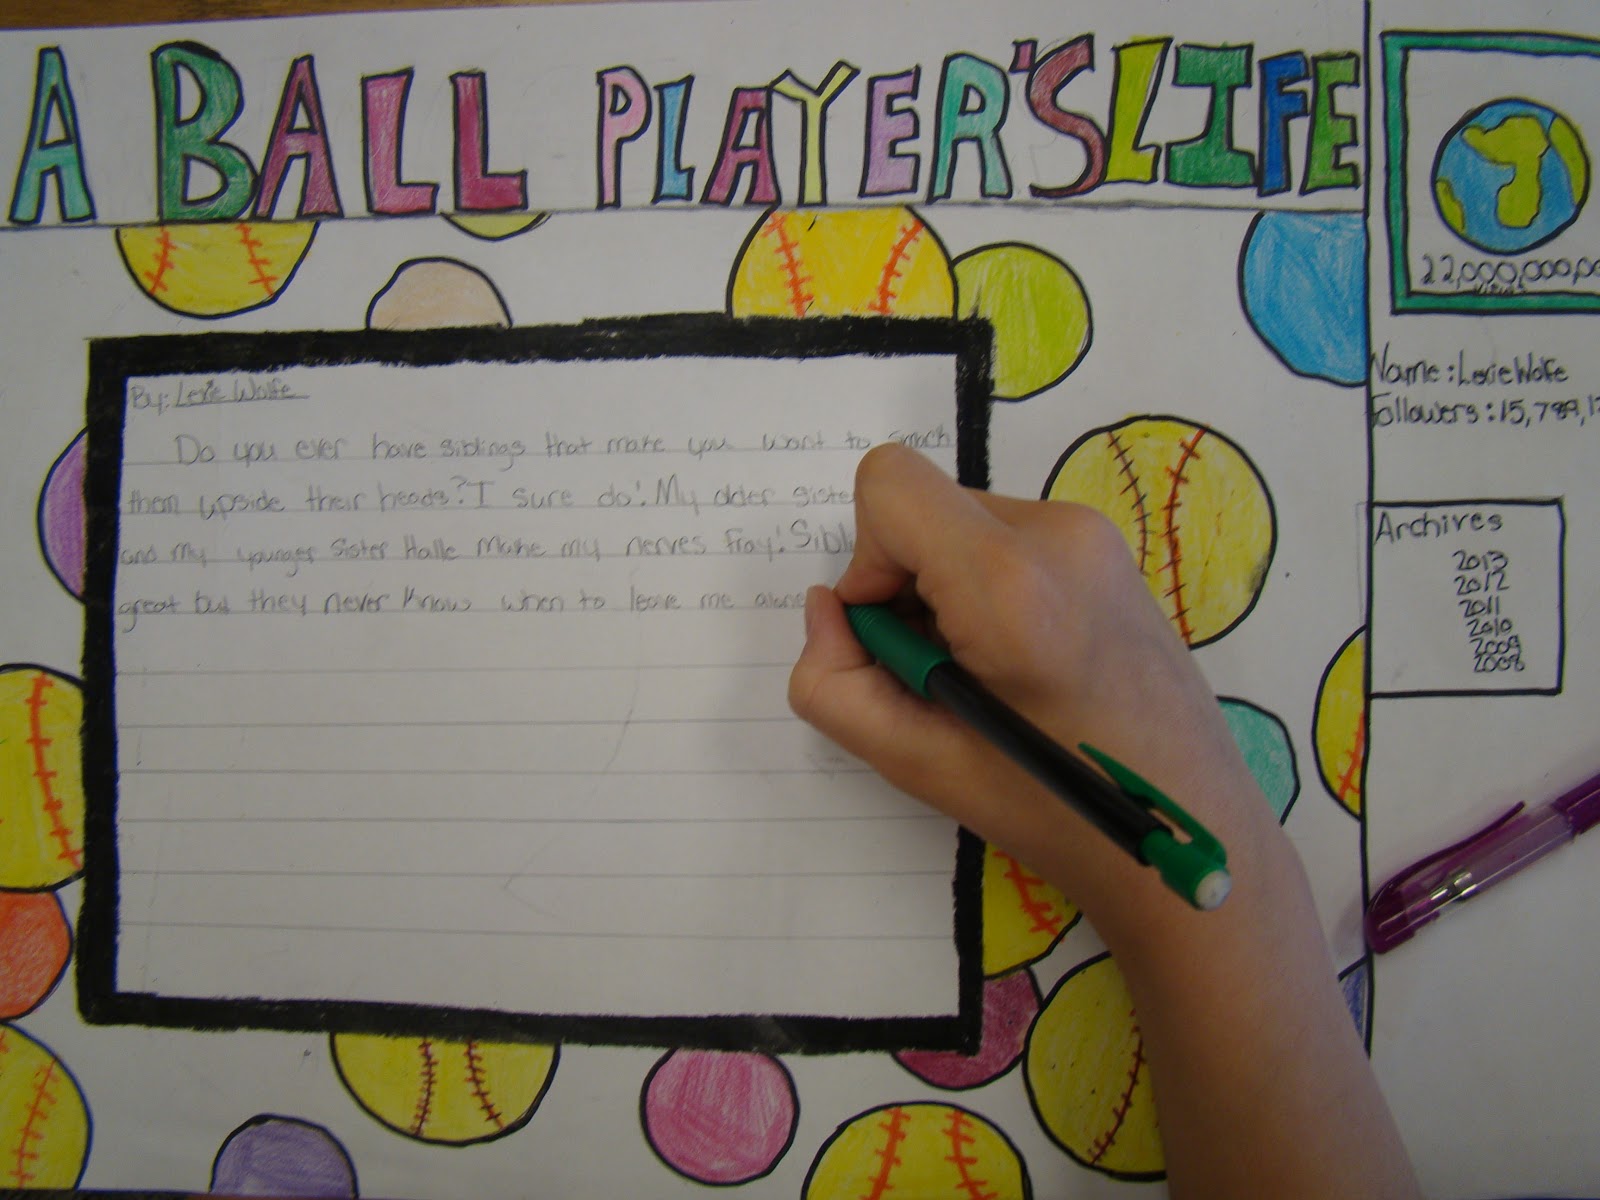 A BALL PLAYER'S LIFE
By: Lexie Wolfe
Do you ever have siblings that make you want to smack
them upside their heads? I sure do! My older sister
and my younger sister Halle make my nerves fray!
great but they never know when to leave me alone
22,000,000,00
views
Name: Lexie Wolfe
Followers: 15,789,1
Archives
2013
2012
2011
2010
2009
2008